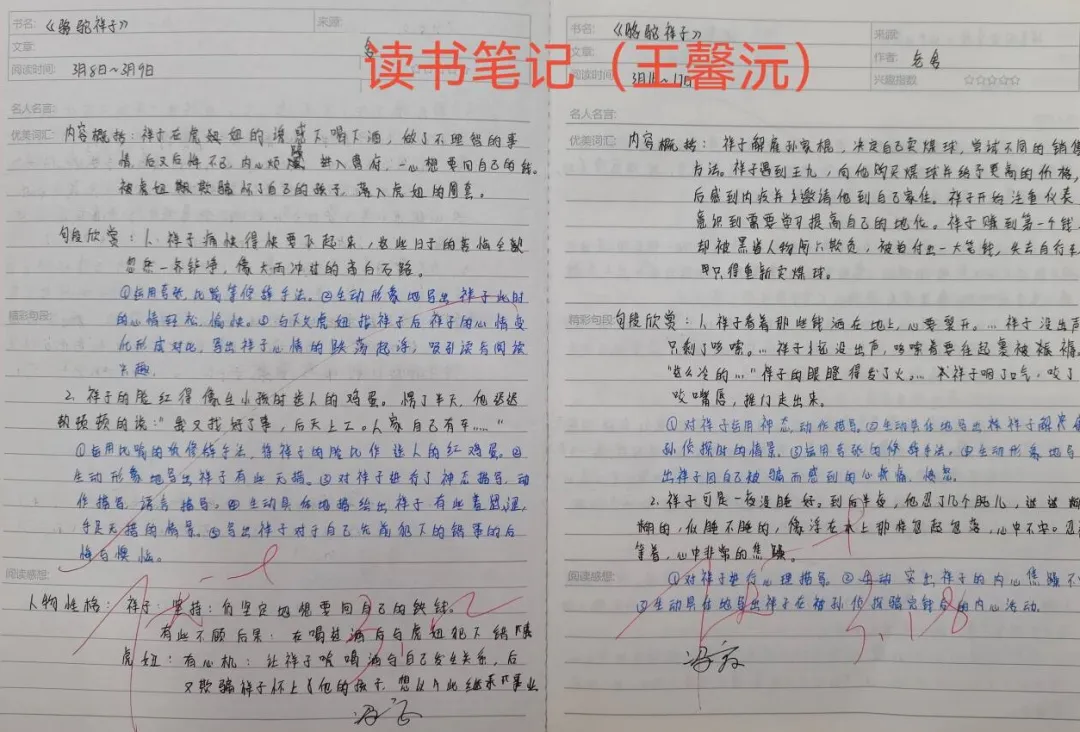 读书笔记（王馨沅）
书名: 《骆驼祥子》
来源:
文章:
阅读时间: 3月8日~3月9日
名人名言:
优美词汇:
内容概括：祥子在虎妞妞的诱惑下喝下酒，做了不理智的事
情，后又后悔不已，内心烦躁。进入曹府，一心想要回自己的钱。
被虎妞欺骗怀了自己的孩子，落入虎妞的圈套。
句段欣赏：1、祥子痛快得快要飞起来，这些日子的苦恼全数
忽然一齐铲净，像大雨冲过的青白石路。
①运用夸张、比喻等修辞手法。②生动形象地写出祥子此时
的心情轻松、愉快。③与下文虎妞找祥子后祥子的心情变
化形成对比，写出祥子心情的跌荡起浮，吸引读者阅读
兴趣。
精彩句段:
2. 祥子的脸红得像生小孩时送人的鸡蛋。愣了半天，他迟迟
顿顿的说："要又找好了事，后天上工。人家自己有车……"
①运用比喻的修辞手法，将祥子的脸比作送人的红鸡蛋。②
生动形象地写出祥子有些无措。③对祥子进行了神态描写、动
作描写、语言描写，④生动具体地描绘出祥子有些羞涩，
手足无措的情景。⑤写出祥子对于自己先前犯下的错事的后
悔与懊恼。
阅读感想:
人物性格：祥子：坚持：仍坚定地想要回自己的钱。
有些不顾后果：在喝过酒后与虎妞犯下错
虎妞：有心机：让祥子喝酒与自己发生关系，后
又欺骗祥子怀上了他的孩子，想以此继承
书名: 《骆驼祥子》
来源:
文章:
作者: 老舍
阅读时间: 3月16~17日
兴趣指数 ☆☆☆☆☆
名人名言:
优美词汇:
内容概括：祥子解雇孙家棍，决定自己卖煤球，尝试不同的销售
方法。祥子遇到王九，向他购买煤球并给予更高的价格，
后感到内疚并邀请他到自己家住。祥子开始注重仪表
意识到需要学习提高自己的地位。祥子赚到第一个钱
却被黑道人物阿六欺负，被迫付出一大笔钱，失去自行车
只得重新卖煤球。
精彩句段:
句段欣赏：1、祥子看着那些钱洒在地上，心要裂开。…祥子没出声
只剩了哆嗦。…祥子还没出声，哆嗦着要往起裹被褥。
"这么冷的…"祥子的眼瞪得发了火。…祥子咽了口气，咬了
咬嘴唇，推门走出来。
①对祥子运用神态、动作描写。②生动具体地写出祥子
孙侦探时的情景。③运用夸张的修辞手法，④生动形象地写
出祥子因自己被骗而感到的心疼痛、愤怒。
2. 祥子可是一夜没睡好。到后半夜，他忍了几个盹儿，迷迷糊
糊的，似睡不睡的，像浮在水上那样忽起忽落，心中不安。
等着，心中非常的焦躁。
阅读感想:
①对祥子进行心理描写。②生动突出祥子的内心焦躁不
③生动具体地写出祥子在被孙侦探骗完钱后的内心活动。